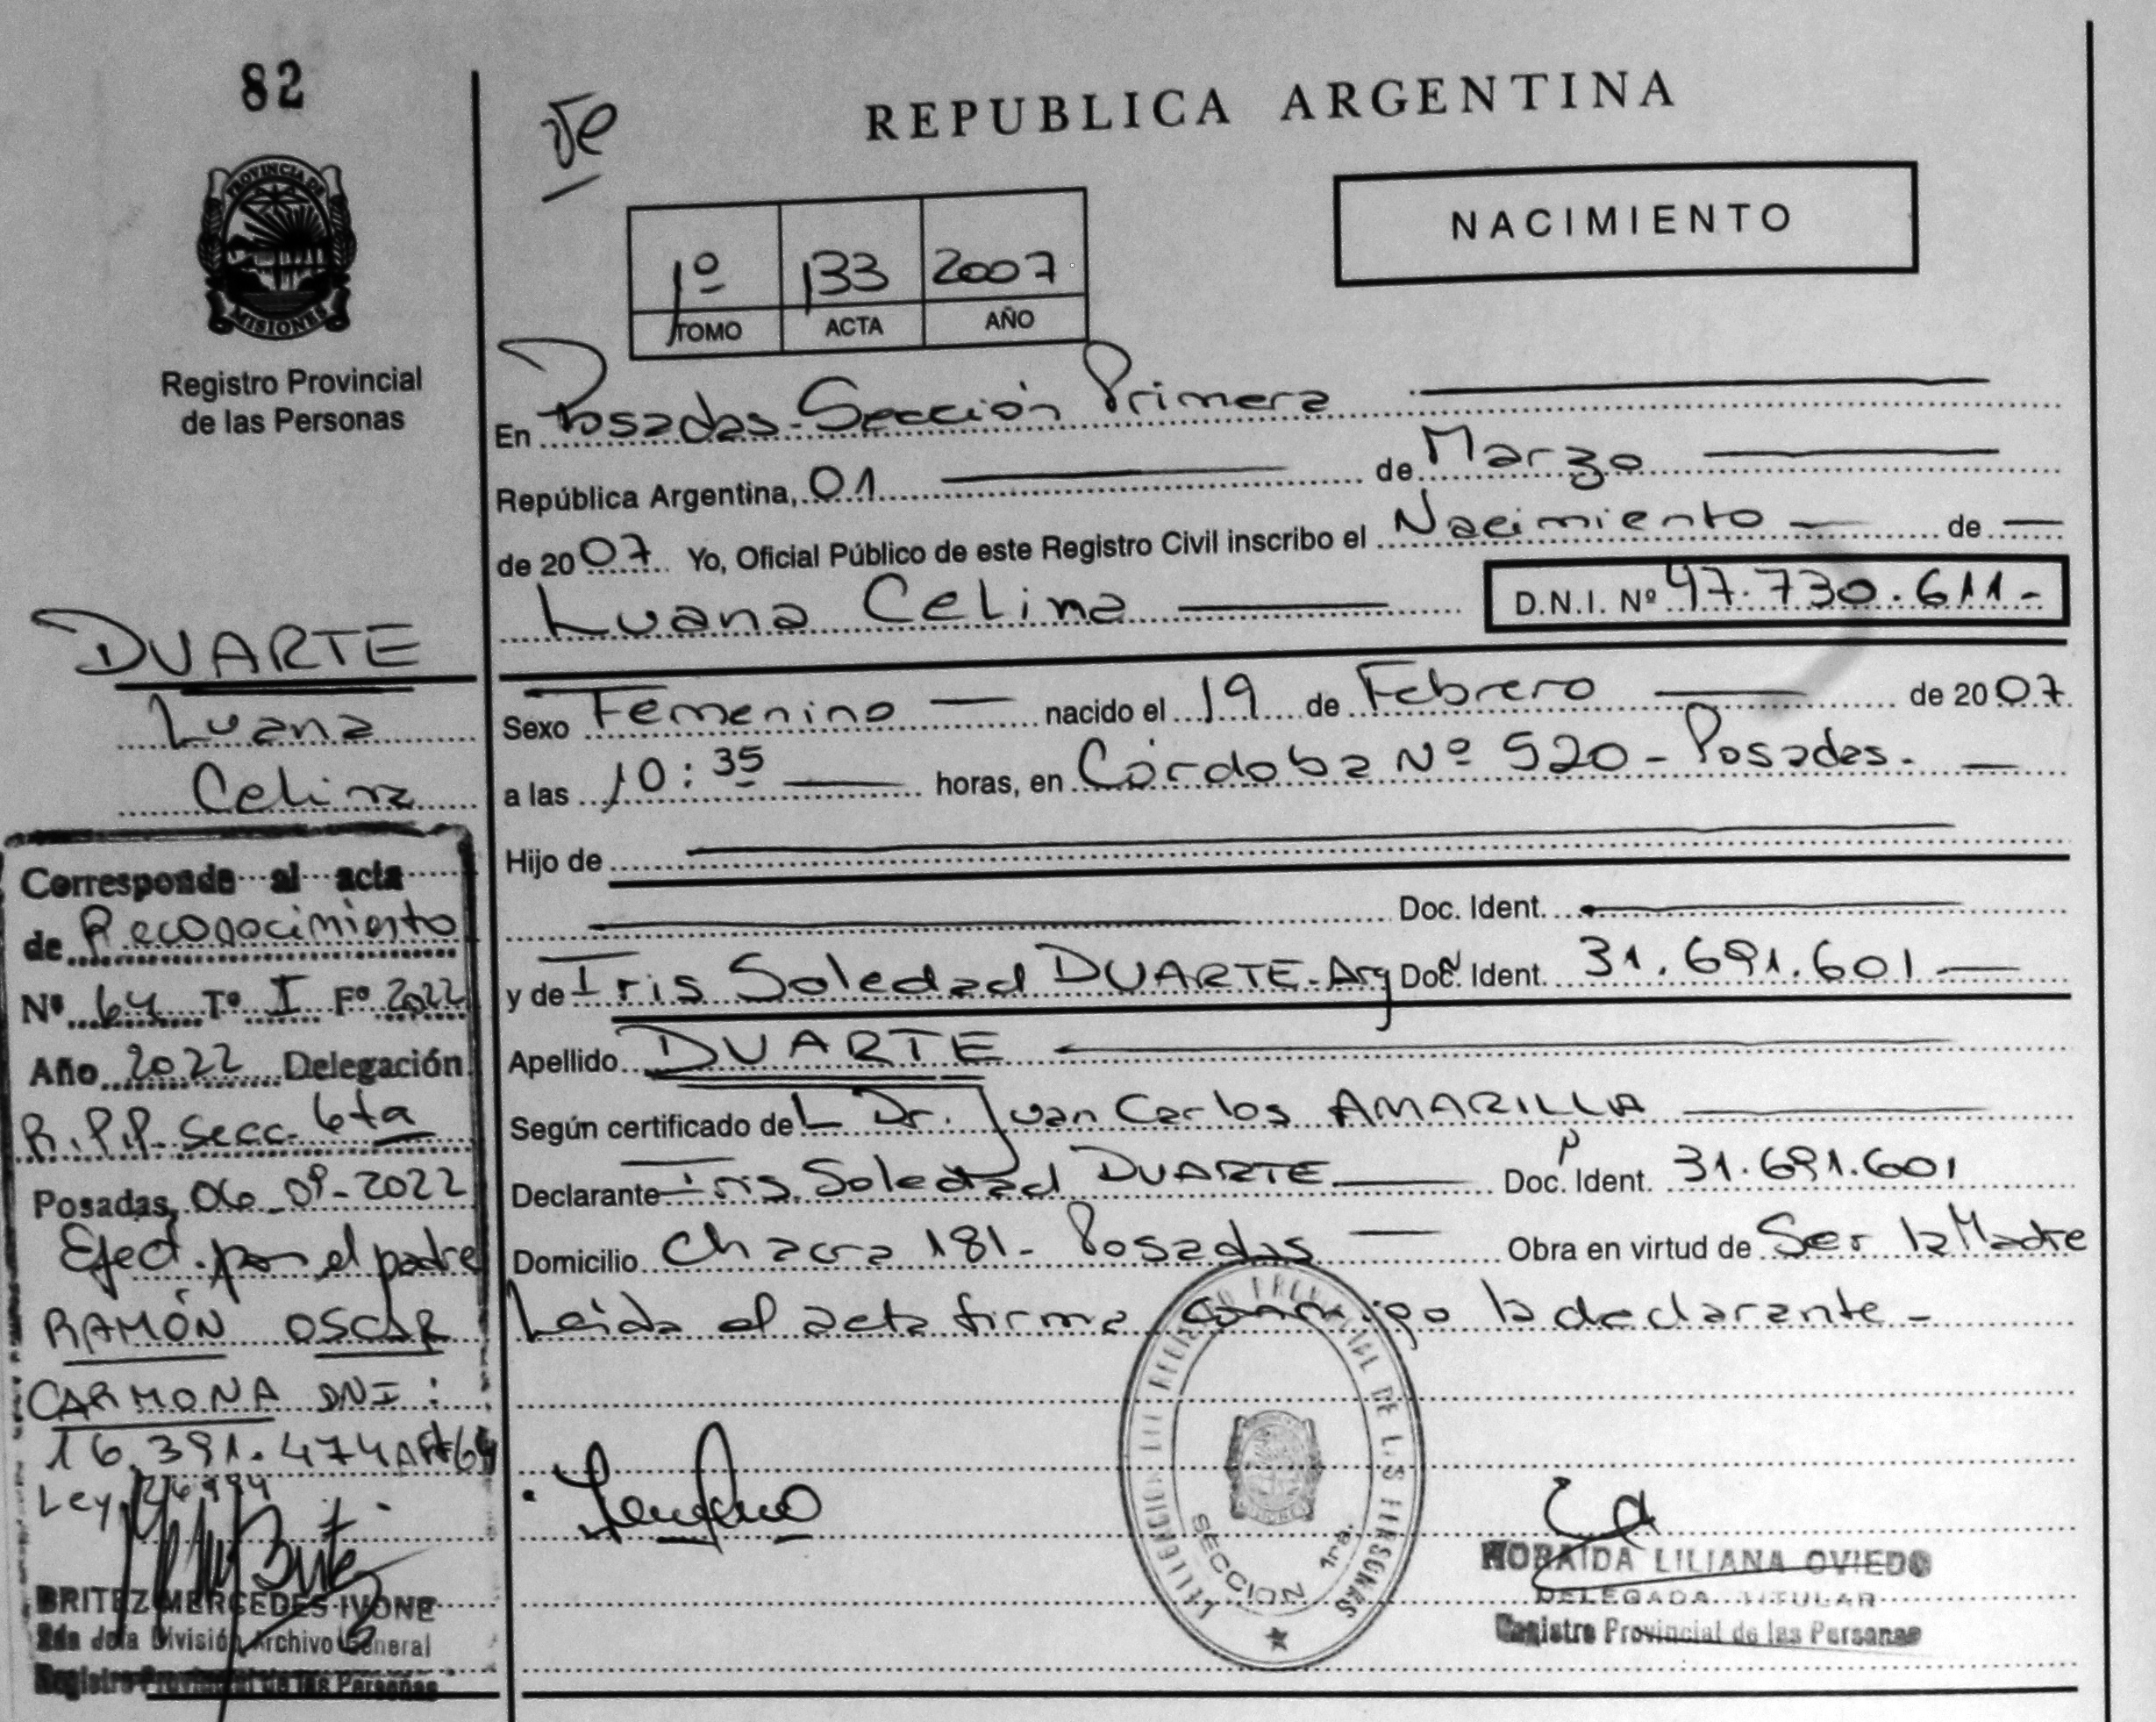 82
PROVINCIA DE
MISIONES
Registro Provincial
de las Personas
DUARTE
Luana
Celina
Corresponde al acta
de Reconocimiento
Nº 64 Tº I Fº 2022
Año 2022 Delegación
R.P.P. Secc. 6ta
Posadas, 06-09-2022
Efect. por el padre
RAMÓN OSCAR
CARMONA DNI:
16.391.474 Art 64
Ley 26994
BRITEZ MERCEDES IVONE
División Archivo General
Registro Provincial de las Personas
REPUBLICA ARGENTINA
NACIMIENTO
1º 133 2007
TOMO ACTA AÑO
En Posadas-Sección Primera
República Argentina, 01 de Marzo
de 2007 Yo, Oficial Público de este Registro Civil inscribo el Nacimiento de
Luana Celina D.N.I. Nº 47.730.611-
Sexo Femenino nacido el 19 de Febrero de 2007
a las 10:35 horas, en Córdoba Nº 520 - Posadas.
Hijo de
Doc. Ident.
y de Iris Soledad DUARTE-Arg Doc. Ident. 31.691.601
Apellido DUARTE
Según certificado de L Dr. Juan Carlos AMARILLA
Declarante Iris Soledad DUARTE Doc. Ident. 31.691.601
Domicilio Chacra 181- Posadas Obra en virtud de Ser la Madre
Leida el acta firma conmigo la declarante -
SECCION 1ra.
LILIANA OVIEDO
DELEGADA TITULAR
Registro Provincial de las Personas